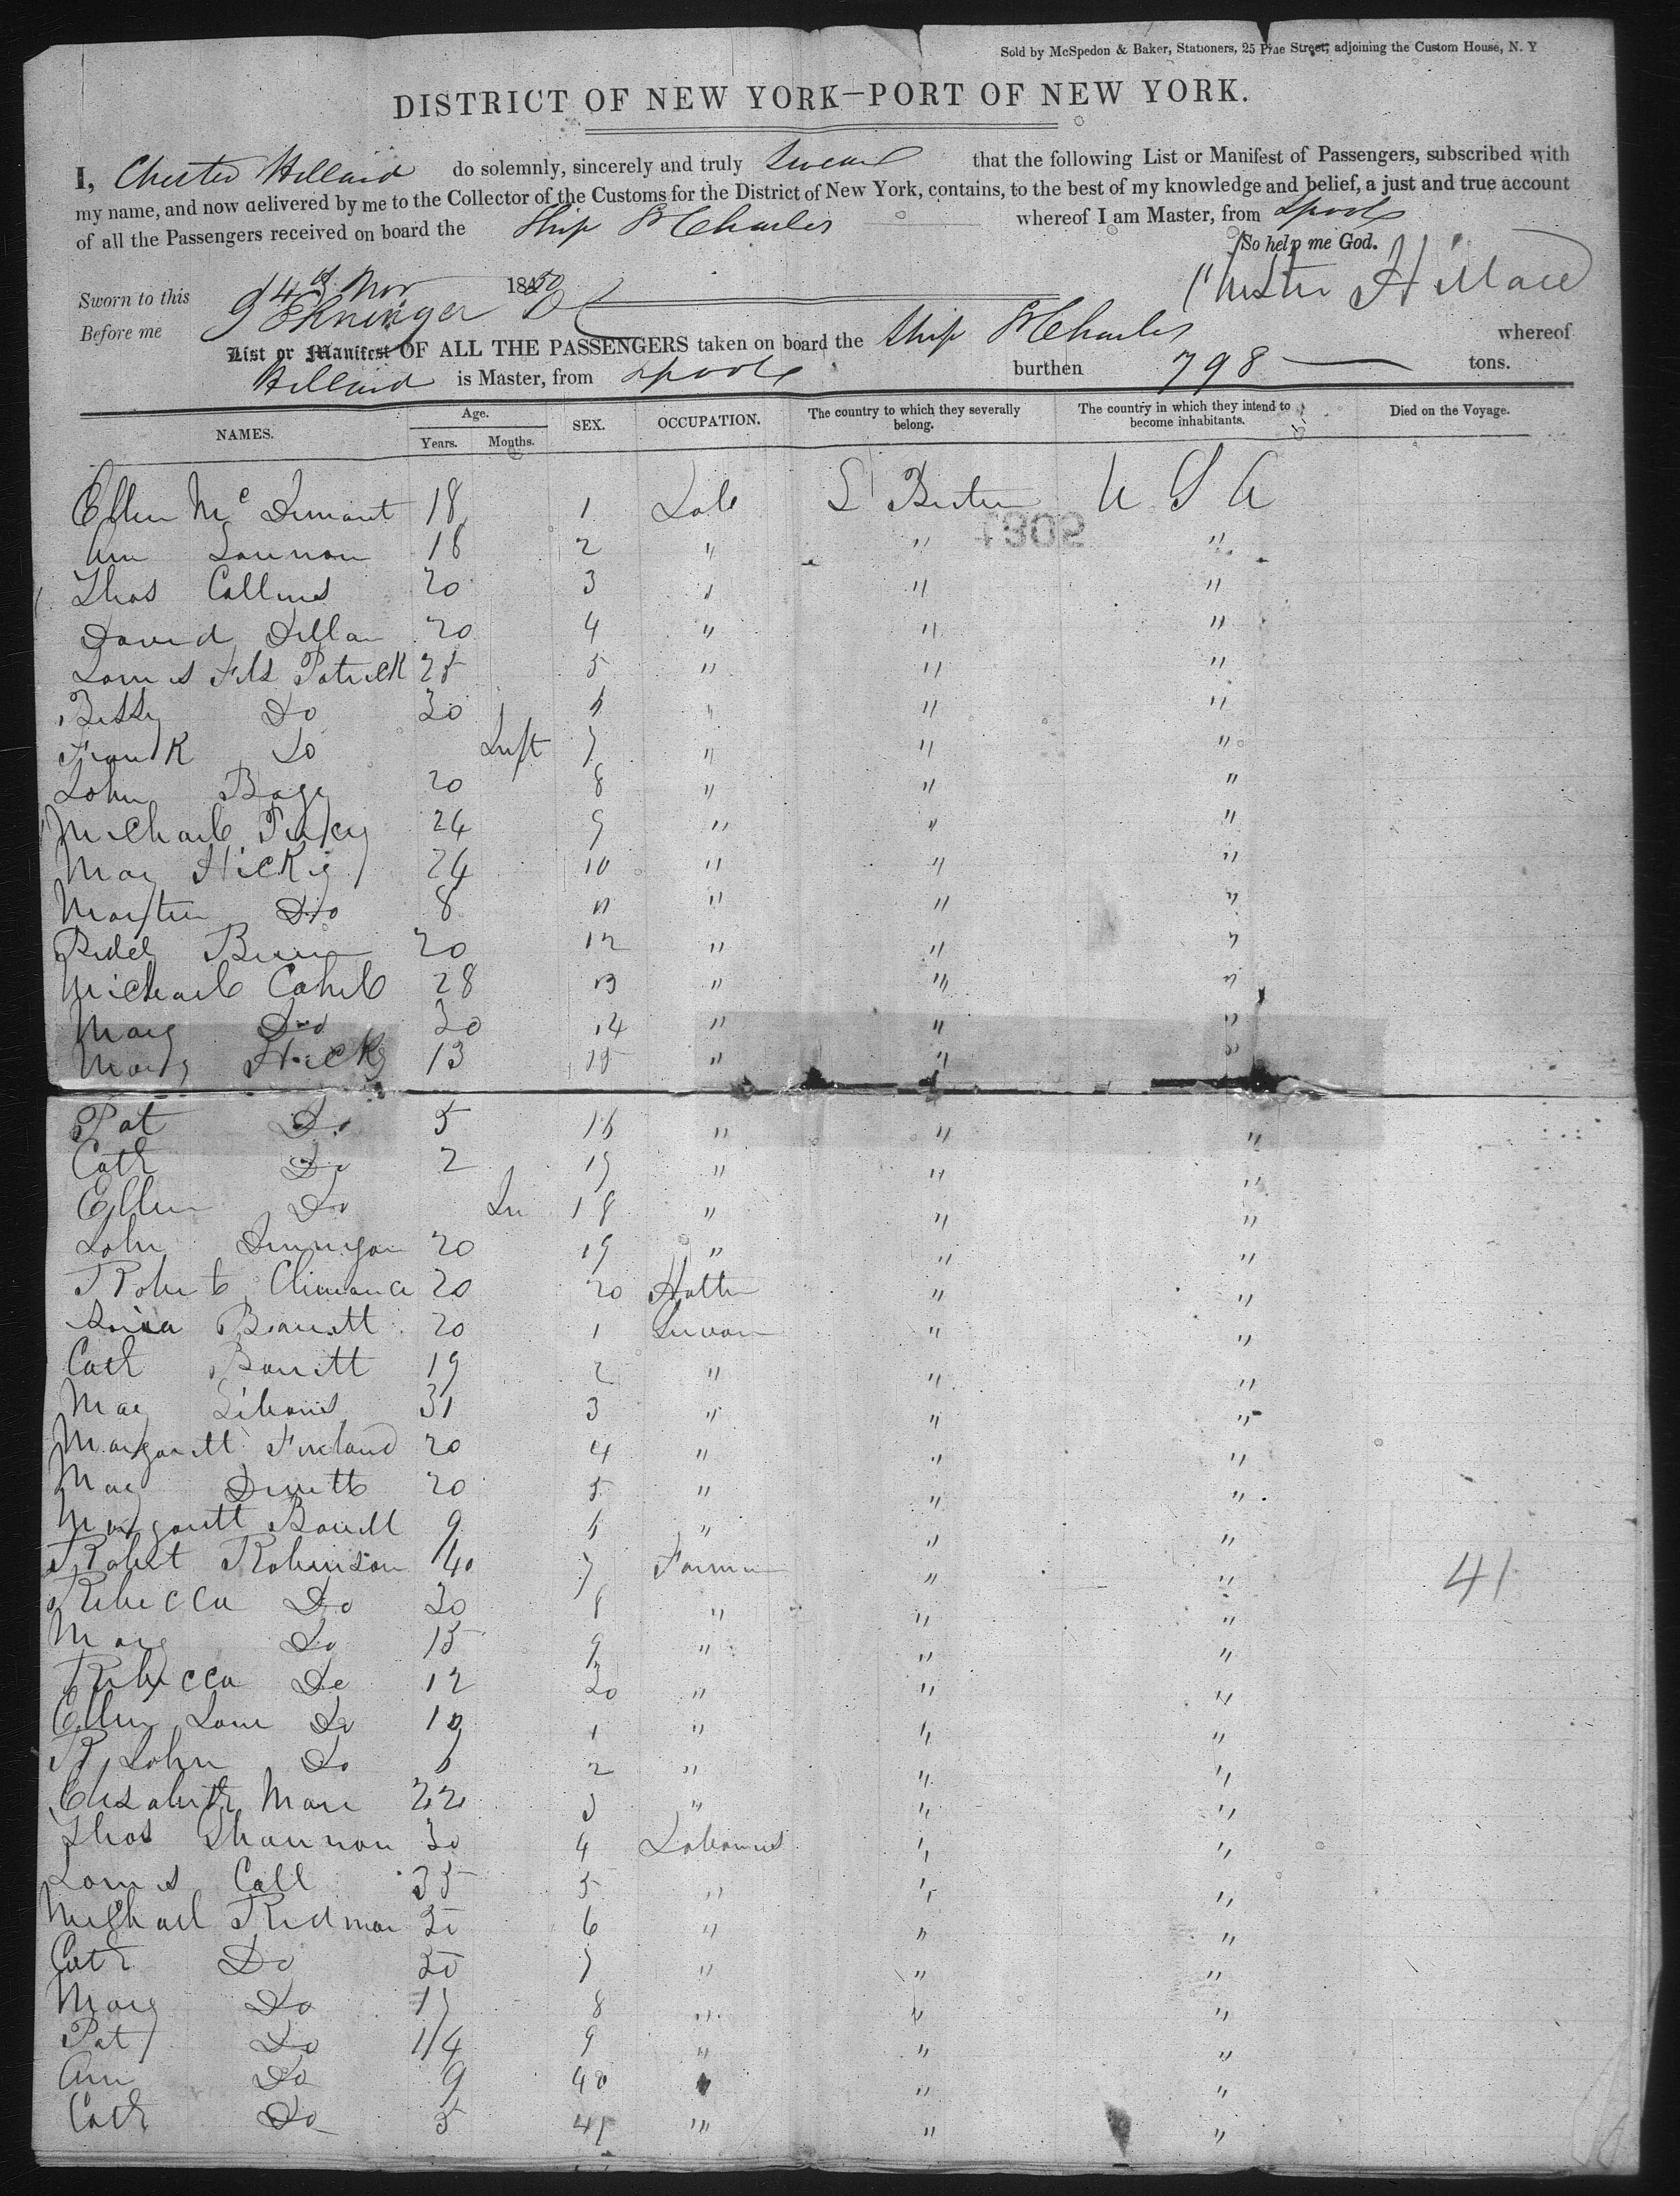 Sold by McSpedon & Baker, Stationers, 25 Pine Street, adjoining the Custom House, N. Y
DISTRICT OF NEW YORK—PORT OF NEW YORK.
I, Chester Hillard do solemnly, sincerely and truly swear that the following List or Manifest of Passengers, subscribed with
my name, and now delivered by me to the Collector of the Customs for the District of New York, contains, to the best of my knowledge and belief, a just and true account
of all the Passengers received on board the Ship St Charles whereof I am Master, from Lpool
So help me God.
Sworn to this 14th Nov 1850 Chester Hillard
Before me
List or Manifest OF ALL THE PASSENGERS taken on board the Ship St Charles whereof
Hillard is Master, from Lpool burthen 798 tons.
NAMES. Age. Years. Months. SEX. OCCUPATION. The country to which they severally belong. The country in which they intend to become inhabitants. Died on the Voyage.
Ellen Mc 18 1 Lab U S A
1302
Ann 18 2 " " "
Thos Collins 20 3 " " "
David Dillan 20 4 " " "
James Fits Patrick 25 5 " " "
Betty Do 30 6 " " "
Frank Do Inft 7 " " "
John 20 8 " " "
Michael 24 9 " " "
Mary Hickey 24 10 " " "
Martin Do 8 11 " " "
20 12 " " "
Michael Cahil 28 13 " " "
Mary Do 30 14 " " "
Mary Hicky 13 15 " " "
Pat Do 5 16 " " "
Cath Do 2 17 " " "
Ellen Do In 18 " " "
John 20 19 " " "
Robert 20 20 Hatter " "
Barrett 20 1 Servan " "
Cath Barrett 19 2 " " "
Mary 31 3 " " "
Margarett 20 4 " " "
Mary 20 5 " " "
Margarett Barrett 9 6 " " "
Robert Robinson 40 7 Farmer " "
41
Rebecca Do 30 8 " " "
Mary Do 15 9 " " "
Rebecca Do 12 30 " " "
Ellen Jane Do 10 1 " " "
R John Do 6 2 " " "
Elisabeth 22 3 " " "
Thos Shannon 30 4 Labourers " "
James Call 35 5 " " "
Michael Redman 30 6 " " "
Cath Do 30 7 " " "
Mary Do 17 8 " " "
Pat Do 14 9 " " "
Ann Do 9 40 " " "
Cath Do 5 41 " " "